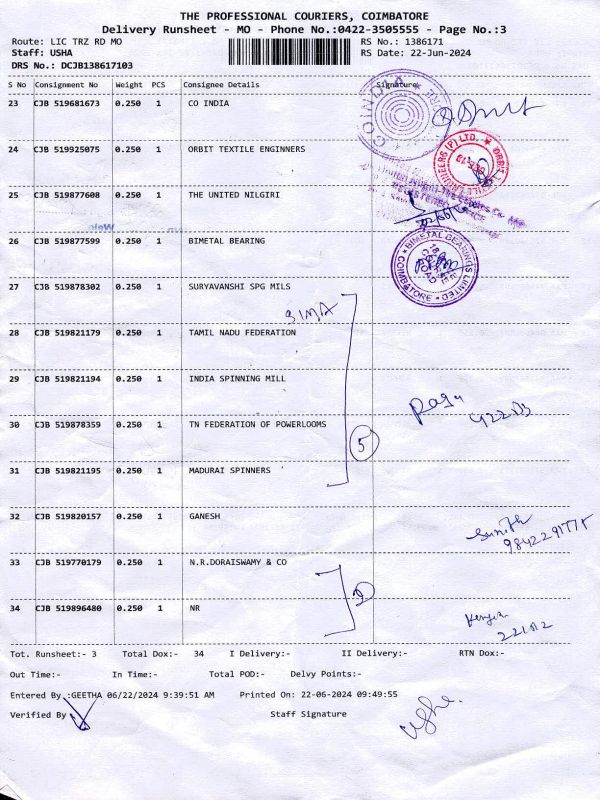 THE PROFESSIONAL COURIERS, COIMBATORE
Delivery Runsheet - MO - Phone No.:0422-3505555 - Page No.:3
Route: LIC TRZ RD MO
RS No.: 1386171
Staff: USHA
RS Date: 22-Jun-2024
DRS No.: DCJB138617103
S No Consignment No Weight PCS Consignee Details Signature
23 CJB 519681673 0.250 1 CO INDIA
24 CJB 519925075 0.250 1 ORBIT TEXTILE ENGINNERS
25 CJB 519877608 0.250 1 THE UNITED NILGIRI
26 CJB 519877599 0.250 1 BIMETAL BEARING
BIMETAL BEARINGS LIMITED
COIMBATORE
27 CJB 519878302 0.250 1 SURYAVANSHI SPG MILS
SIMA
28 CJB 519821179 0.250 1 TAMIL NADU FEDERATION
29 CJB 519821194 0.250 1 INDIA SPINNING MILL
30 CJB 519878359 0.250 1 TN FEDERATION OF POWERLOOMS
5
31 CJB 519821195 0.250 1 MADURAI SPINNERS
32 CJB 519820157 0.250 1 GANESH
33 CJB 519770179 0.250 1 N.R.DORAISWAMY & CO
34 CJB 519896480 0.250 1 NR
Tot. Runsheet:- 3 Total Dox:- 34 I Delivery:- II Delivery:- RTN Dox:-
Out Time:- In Time:- Total POD:- Delvy Points:-
Entered By :GEETHA 06/22/2024 9:39:51 AM Printed On: 22-06-2024 09:49:55
Verified By Staff Signature